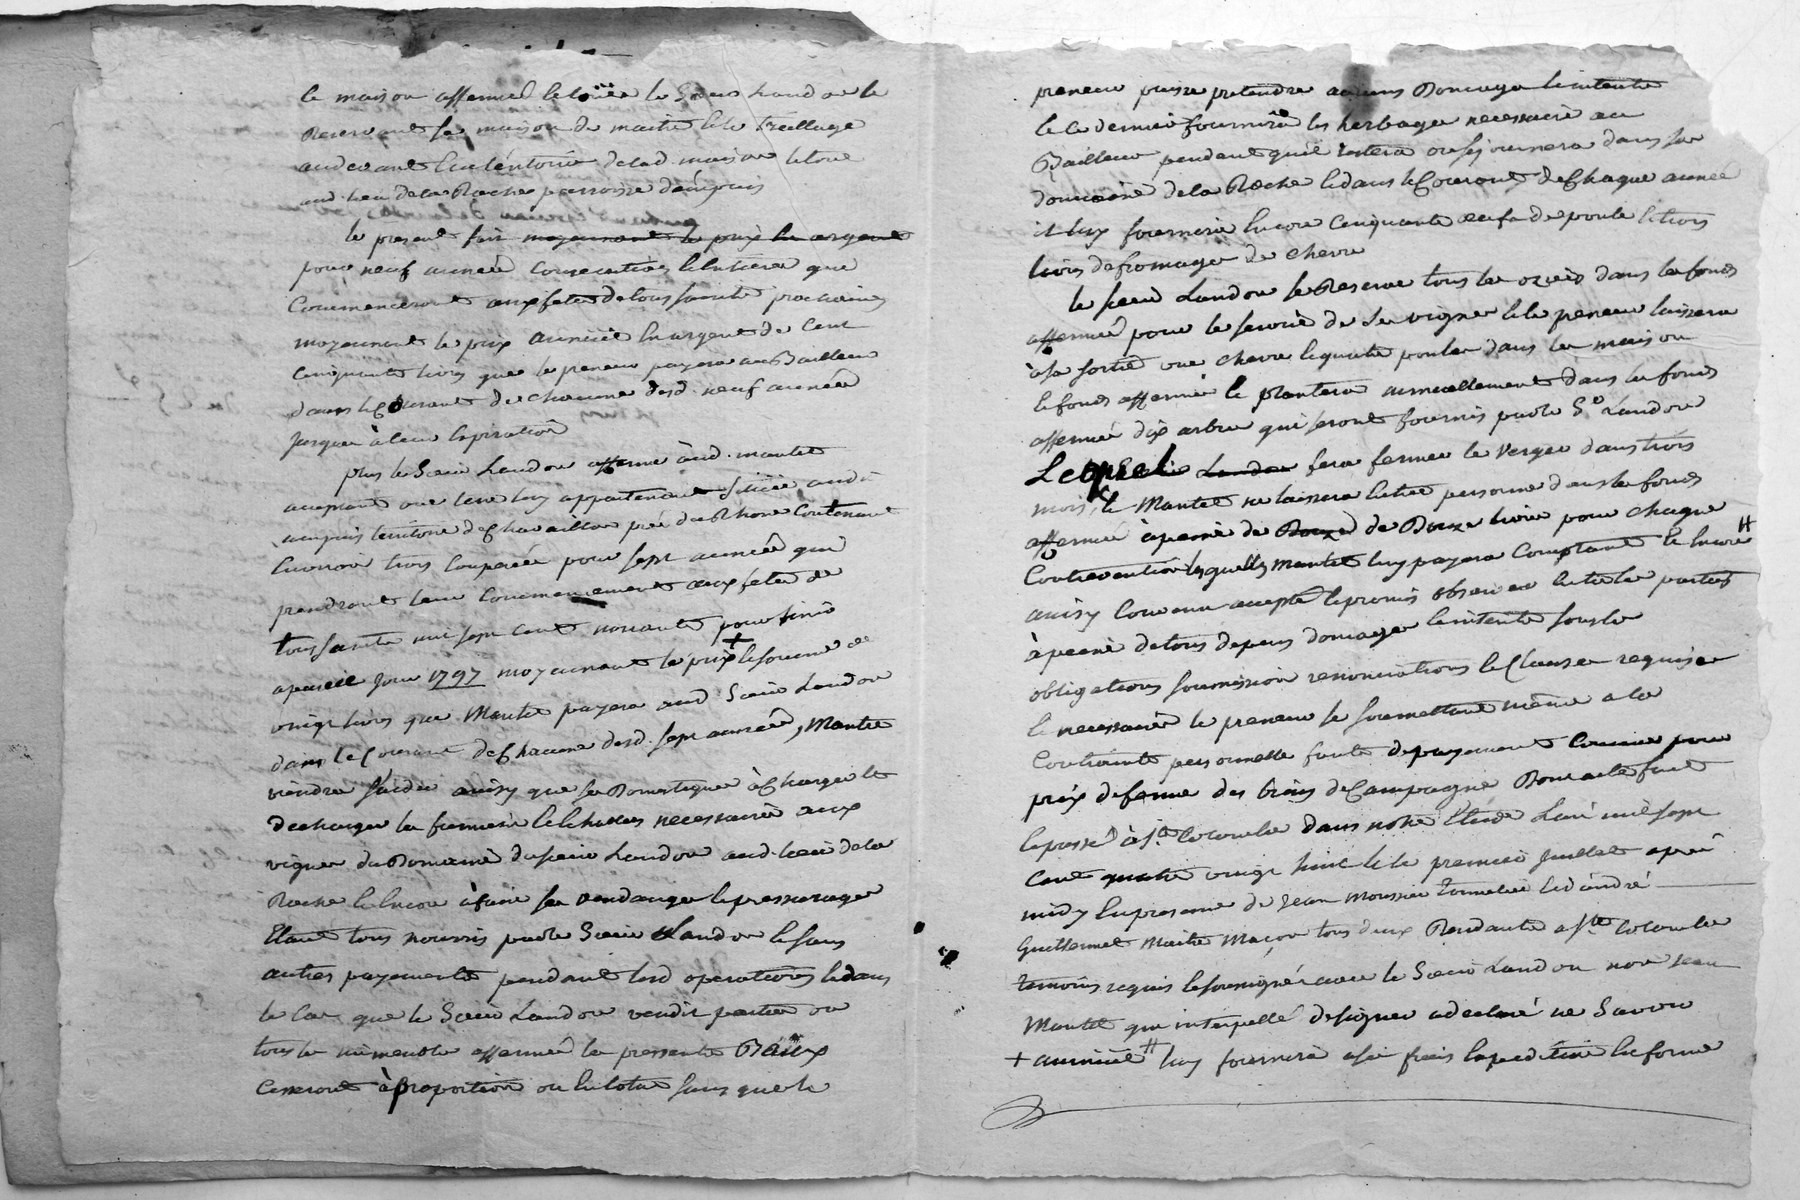 la maison affermée le Sieur Landon se
Reservant sa maison de maitre et le Treillage
audevant de lad. maison le tout
aud. lieu de la Roche parroisse d'ampuis
le present fait moyennant le prix en argent
pour neuf année consecutives et entieres que
commenceront aux fetes de toussaints prochaines
moyennant le prix annuel en argent de cent
cinquante livres que le preneur payera au Bailleur
dans le Courant de chacune desd. neuf année
jusques à leur Expiration
plus le Sieur Landon afferme aud. mantel
acceptant une terre luy appartenant Située audit
ampuis territoire de Chavaillon près du Rhone Contenant
Environ trois couperée pour sept année qui
prendront leur Commencement aux fetes de
toussaints mil sept cent nonante pour finir
a pareil Jour 1797 moyennant le prix + et somme de
vingt livres que Mantel payera aud Sieur Landon
dans le Courant de Chacune desd. sept année, Mantel
viendra ainsy que sa Domestique à charger et
decharger les fumiers et Echallas necessaires aux
vignes du Domaine du sieur Landon aud. lieu de la
Roche et Encore à faire ses vendanges et pressurage
Etant tous nourris par le Sieur Landon et sans
autres payements pendant lesd operations et dans
le Cas que le Sieur Landon vendit partie ou
tous les immeubles affermé les presents Baux
Cesseront à proportion ou En total sans que le
preneur puisse pretendre aucuns Domages Et interets
et ce dernier fournira les herbages necessaires au
Bailleur pendant qu'il restera ou sejournera dans son
domaine de la Roche et dans le Courant de Chaque année
il luy fournira Encore Cinquante oeufs de poule et trois
livres de fromages de chevre
le sieur Landon se Reserve tous les oziers dans les fonds
affermés pour le service de ses vignes et le preneur laissera
à sa sortie une chevre et quatre poules dans la maison
et fonds affermés et plantera annuellement dans les fonds
affermés dix arbres qui seront fournis par le Sr Landon
Lequel Landon fera fermer le Verger dans trois
mois, et Mantel ne laissera Entrer personne dans les fonds
affermé à peine de Douze de Douze livres pour chaque
Contravention lesquelles Mantel luy payera Comptant et Encore #
ainsy Convenu accepté et promis observer entre les parties
à peine de tous depens domages Et interets sous les
obligations soumission renonciations et Clauses requises
et necessaires le preneur se soumettant même a la
Contrainte personnelle faute de payement Comme pour
prix de ferme des biens de Campagne Dont acte fait
et passé à Ste Colombe dans notre Etude L'an mil sept
cent quatre vingt huit et le premier Juillet après
midy En presence de Jean Moussier tonnelier et d'andré
Guillermet Maitre Maçon tous deux Residants a Ste Colombe
temoins requis et soussignés avec le Sieur Landon non Jean
Mantel qui interpellé de signer a declaré ne Savoir
+ annuel # luy fournira a ses frais Expedition En forme